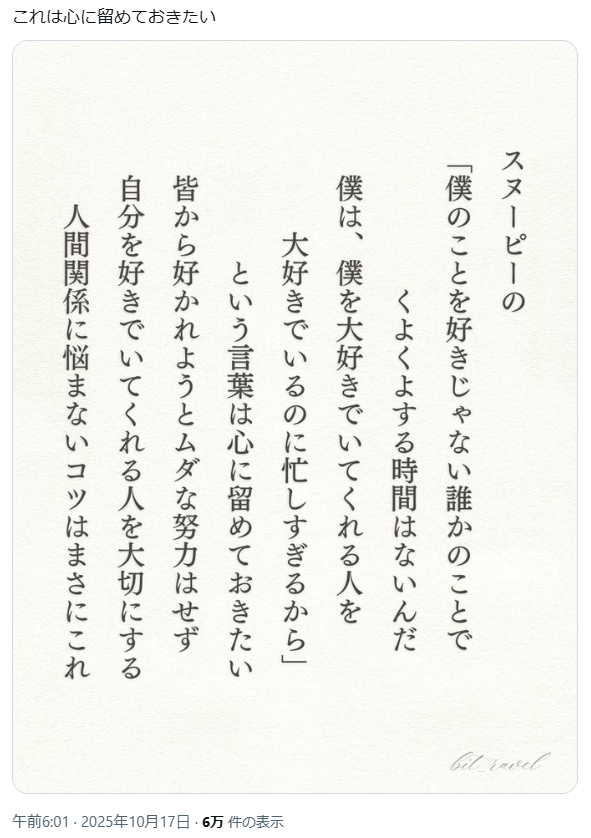 これは心に留めておきたい
スヌーピーの
「僕のことを好きじゃない誰かのことで
くよくよする時間はないんだ
僕は、僕を大好きでいてくれる人を
大好きでいるのに忙しすぎるから」
という言葉は心に留めておきたい
皆から好かれようとムダな努力はせず
自分を好きでいてくれる人を大切にする
人間関係に悩まないコツはまさにこれ
bit_ravel
午前6:01 · 2025年10月17日 · 6万 件の表示